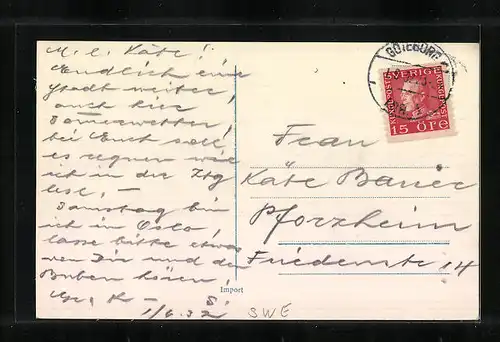 M. l. Käte!
Endlich eine
Stadt weiter,
auch hier
Sauwetter,
bei Euch soll
es regnen wie
ich in der Ztg
lese. –
Samstag bin
ich in Oslo,
lasse bitte etwas
von Dir und den
Buben hören,
Gr. K – S.
1/6.32
GÖTEBORG
SVERIGE
15 ÖRE
Frau
Käte Bauer
Pforzheim
Friedenstr 14
Import
SWE